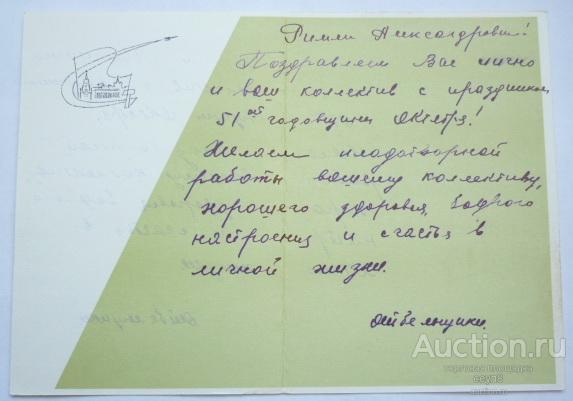 Римли Александрович!
Поздравляем Вас лично
и ваш коллектив с праздником
51ой годовщины Октября!
Желаем плодотворной
работы вашему коллективу,
хорошего здоровья, бодрого
настроения и счастья в
личной жизни.
Auction.ru
торговая площадка